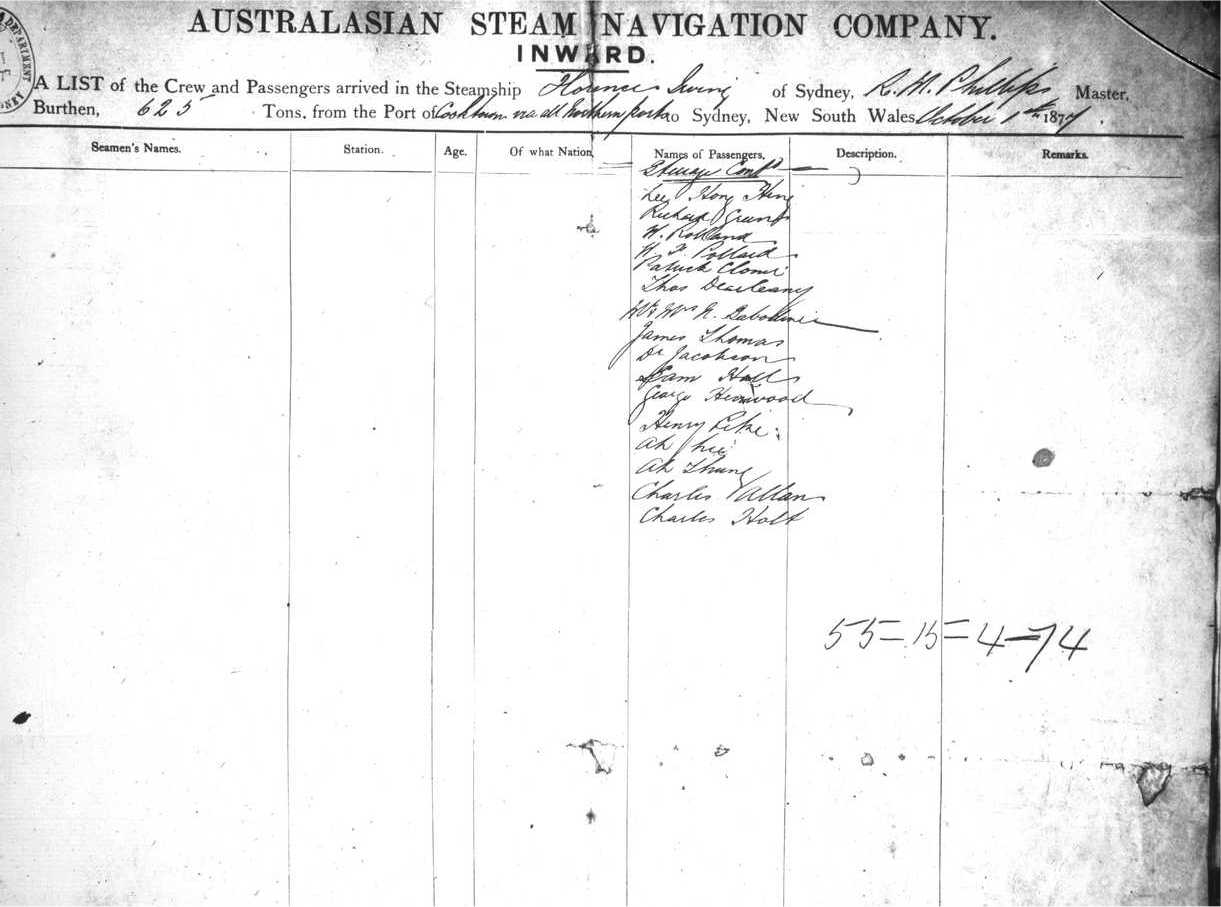 AUSTRALASIAN STEAM NAVIGATION COMPANY.
INWARD.
A LIST of the Crew and Passengers arrived in the Steamship Florence Irving of Sydney, R. M. Phillips Master,
Burthen, 625 Tons, from the Port of Cooktown via all Northern ports to Sydney, New South Wales October 1st 1877.
DEPARTMENT
Seamen's Names. Station. Age. Of what Nation. Names of Passengers. Description. Remarks.
Steerage Contd
Lee Hong Hing
Richard
W. Rolland
W. F. Pollard
Patrick
Thos
Mr & Mrs N.
James Thomas
Dr Jacobson
Sam Halls
George Heowood
Henry
Ah
Ah Shung
Charles Allan
Charles Holt
55=15=4=74